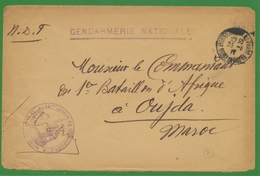 N.D.F
GENDARMERIE NATIONALE
Monsieur le Commandant
du 1er Bataillon d'Afrique
à Oujda
Maroc